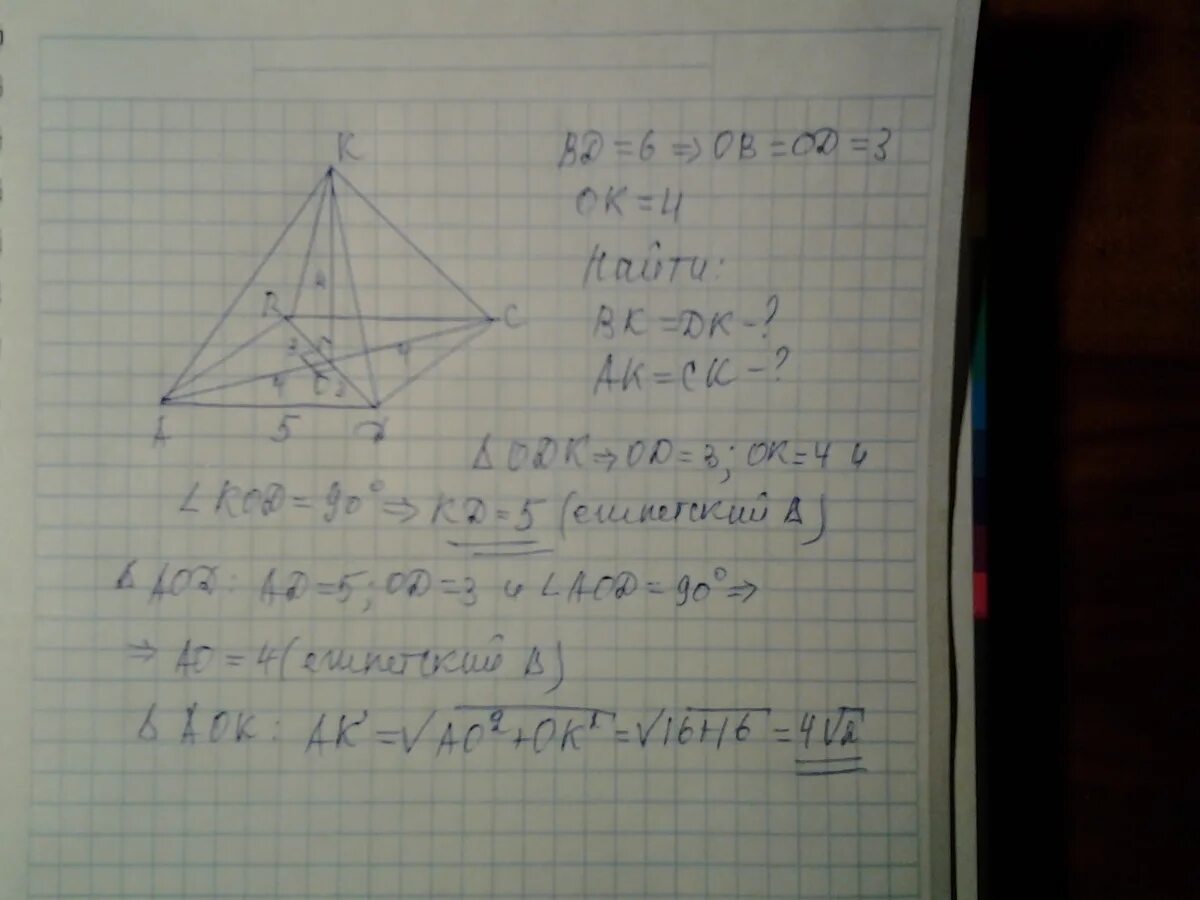 K
BD = 6 ⇒ OB = OD = 3
OK = 4
Найти:
BK = DK - ?
AK = CK - ?
4
B
C
3
4
4
O
3
A
5
D
Δ ODK ⇒ OD = 3; OK = 4 и
∠ KOD = 90° ⇒ KD = 5 (египетский Δ)
Δ AOD: AD = 5; OD = 3 и ∠ AOD = 90° ⇒
⇒ AO = 4 (египетский Δ)
Δ AOK: AK = √AO² + OK² = √16+16 = 4√2